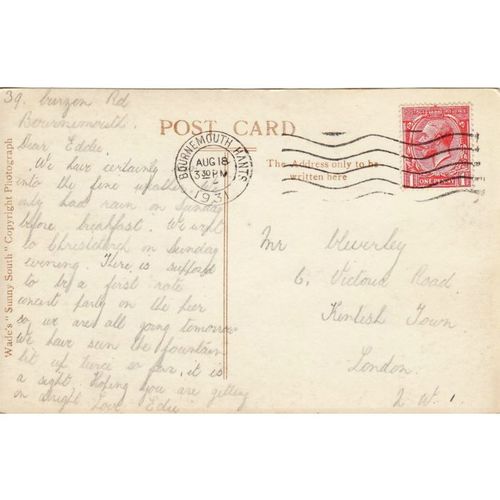 39 Curzon Rd
Bournemouth.
Dear Eddie.
We have certainly
into the fine weather
only had rain on Sunday
before breakfast. We went
to Christchurch on Sunday
evening. There is supposed
to be a first rate
concert party on the pier
so we are all going tomorrow
We have seen the fountain
lit up twice so far, it is
a sight. Hoping you are getting
on alright Love Edie
Wade's "Sunny South" Copyright Photograph
POST CARD
The Address only to be
written here
BOURNEMOUTH, HANTS
AUG 18
3 30 PM
1931
ONE PENNY
Mr
6, Victoria Road.
Kentish Town
London.
N.W.1